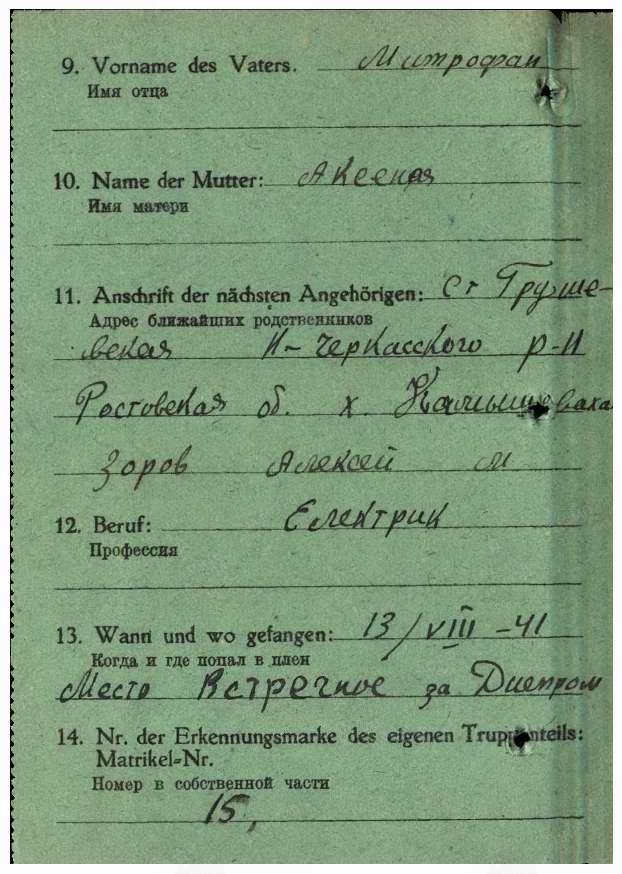 9. Vorname des Vaters. Митрофан
Имя отца
10. Name der Mutter: Аксения
Имя матери
11. Anschrift der nächsten Angehörigen: Ст Груше-
Адрес ближайших родственников
вская Н-Черкасского р-н
Ростовская об. х. Камышеваха
Зоров Алексей м
12. Beruf: Електрик
Профессия
13. Wann und wo gefangen: 13/VIII-41
Когда и где попал в плен
Место Встречное за Днепром
14. Nr. der Erkennungsmarke des eigenen Truppenteils:
Matrikel-Nr.
Номер в собственной части
15,